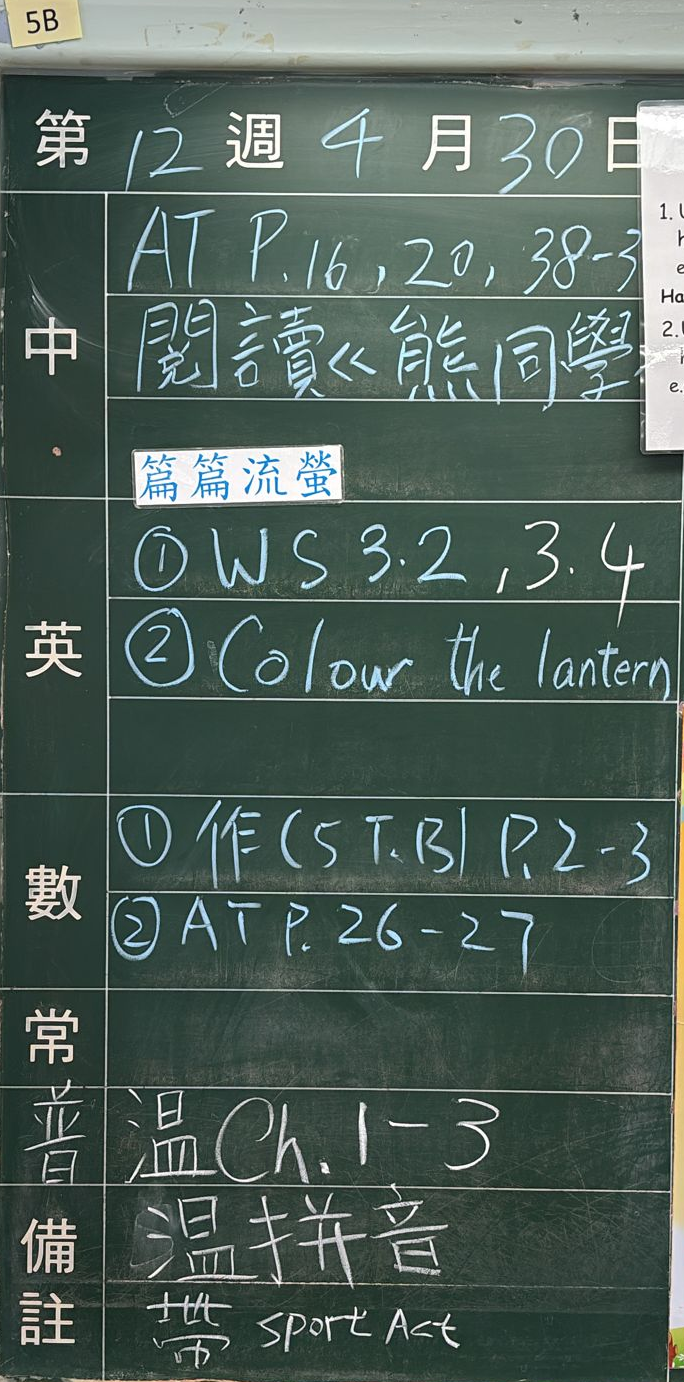 5B
第 12 週 4 月 30 日
中
AT P.16, 20, 38-3
閱讀《熊同學
篇篇流螢
英
① WS 3.2, 3.4
② Colour the lantern
數
① 作(5T.B) P.2-3
② AT P.26-27
常
普 温 Ch.1-3
備註
温拼音
帶 sport Act
1.
e
Ha
2.
e.